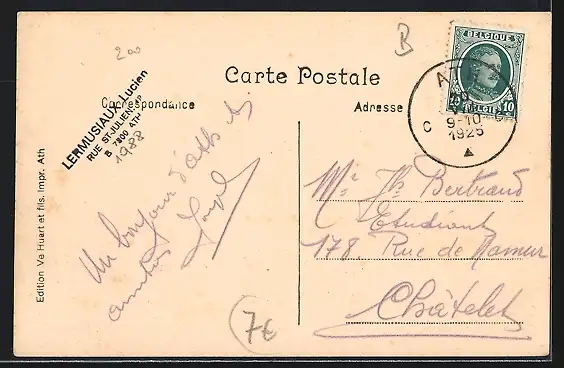 200
B
BELGIQUE
10
BELGIE 10
ATH
9-10
C
1925
Carte Postale
Correspondance
Adresse
LERMUSIAUX Lucien
RUE ST-JULIEN
B 7800 ATH
1988
Un bonjour d'Ath et
amitiés
Mr Jh Bertrand
Etudiant
178, Rue de Namur
Châtelet
7€
Edition Ve Huart et fils. Impr. Ath